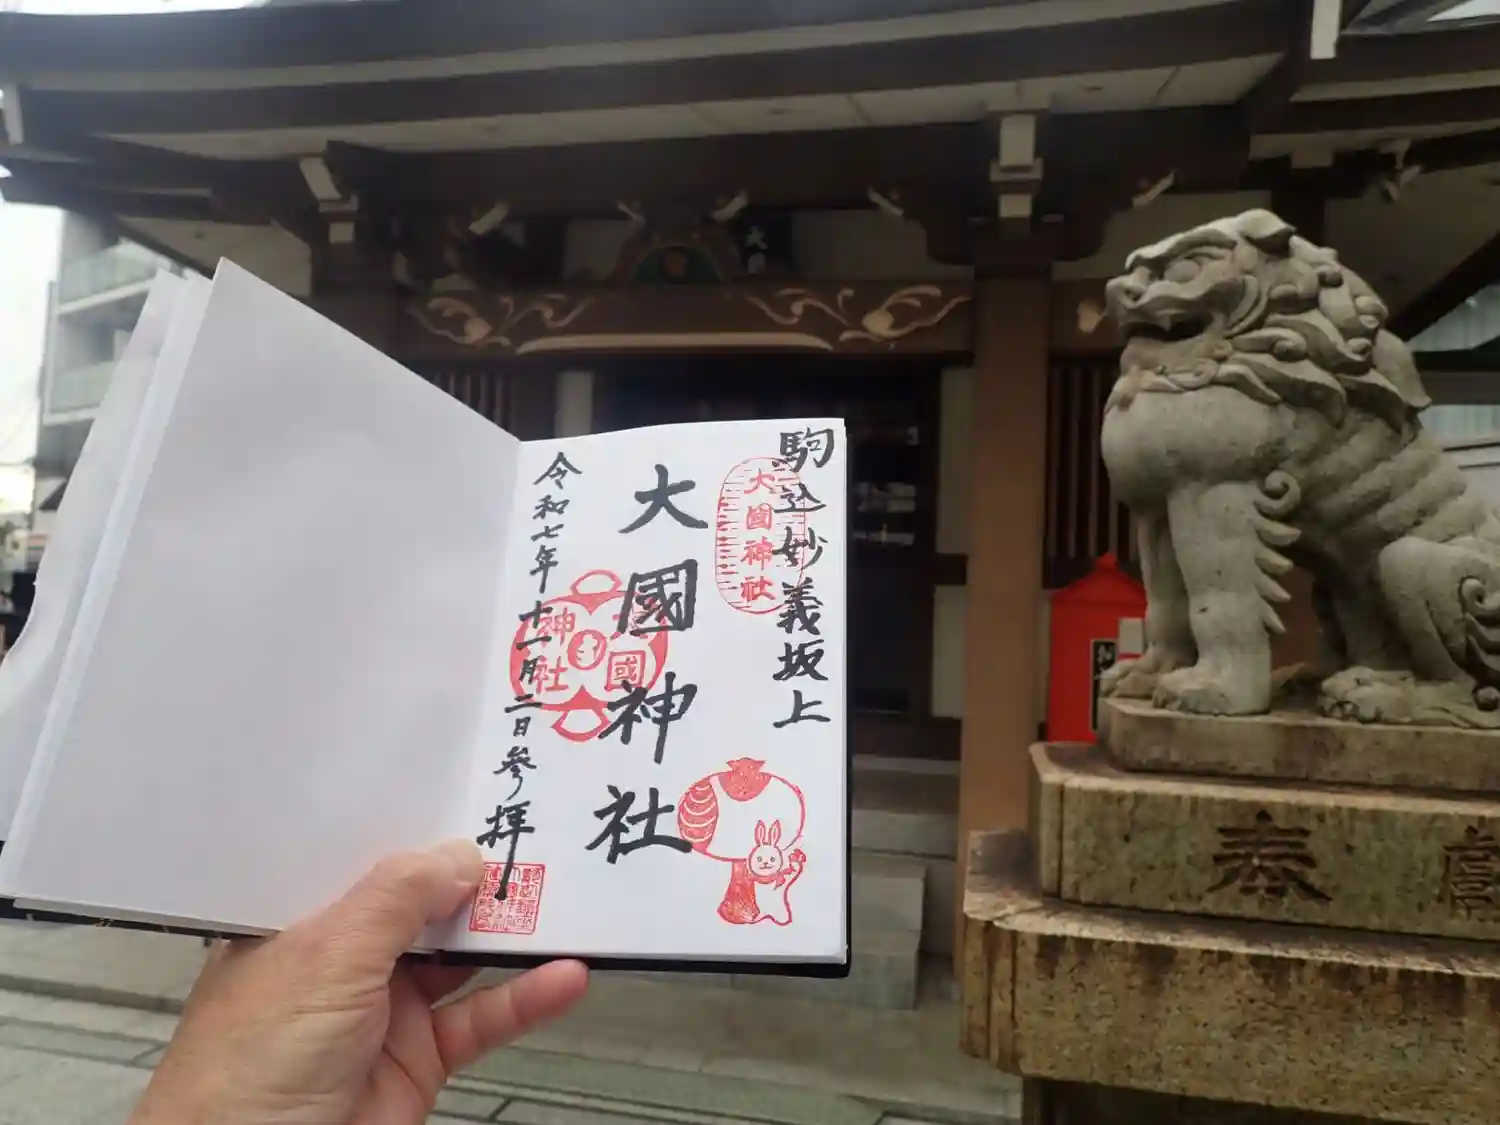 駒込妙義坂上
大國神社
大國神社
大國神社
令和七年十一月二日参拝
奉
献